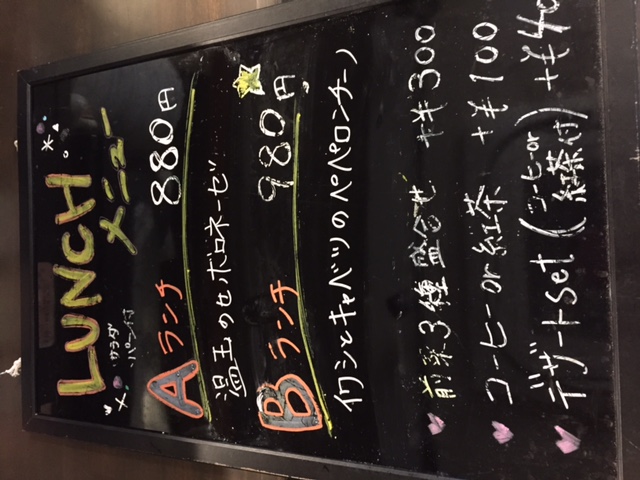 LUNCH
メニュー
サラダ
パン付
Aランチ 880円
温玉のせボロネーゼ
Bランチ 980円
イワシとキャベツのペペロンチーノ
前菜3種盛合せ +¥300
コーヒーor紅茶 +¥100
デザートset(コーヒーor紅茶付) +¥40